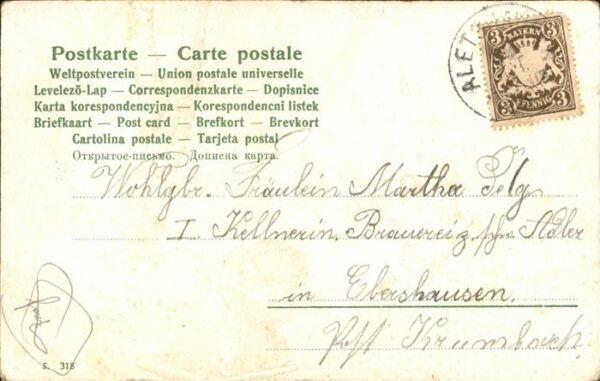 Postkarte — Carte postale
Weltpostverein — Union postale universelle
Levelező-Lap — Correspondenzkarte — Dopisnice
Karta korespondencyjna — Korespondencni listek
Briefkaart — Post card — Brefkort — Brevkort
Cartolina postale — Tarjeta postal
Открытое-письмо. Дописна карта.
3 BAYERN 3
3 PFENNIG 3
Wohlgbr. Fräulein Martha Selg
I. Kellnerin, Brauerei z. Adler
in Ebershausen.
Post Krumbach
S. 318